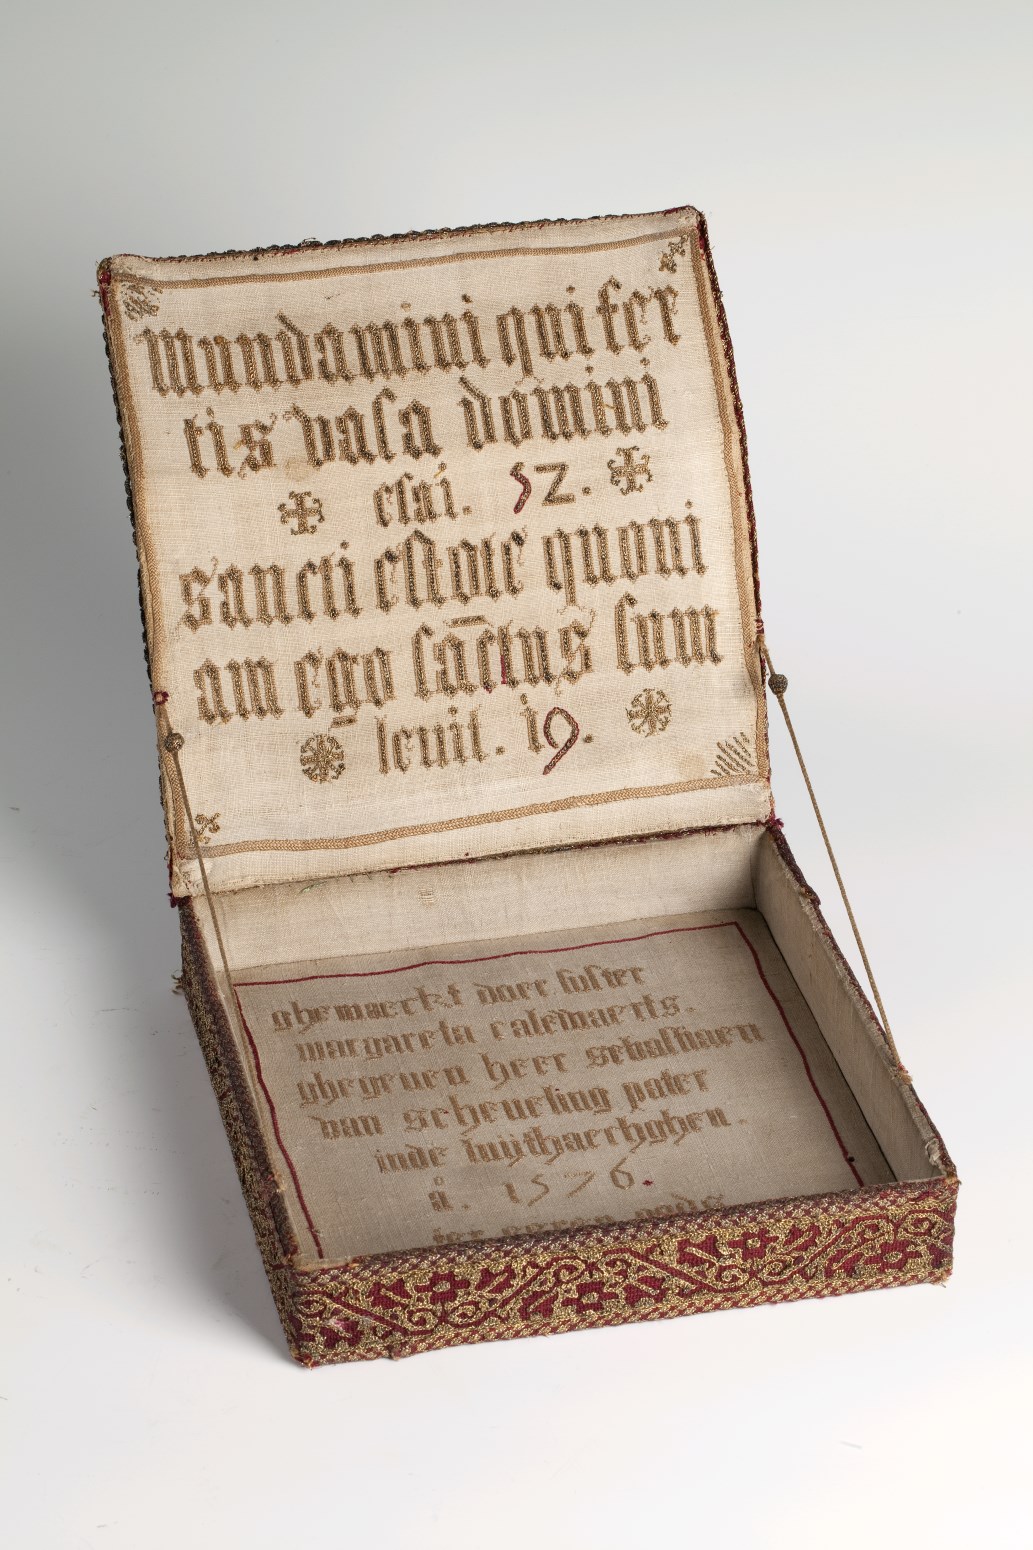 mundamini qui fer
tis vasa domini
esai. 52.
sancti estote quoni
am ego sāctus sum
leuit. i9.
ghemaeckt doer suster
margareta ralewaerts.
ghegeuen heer sebastiaen
van scheueling pater
inde luijthaerhoghen.
å. 1576.